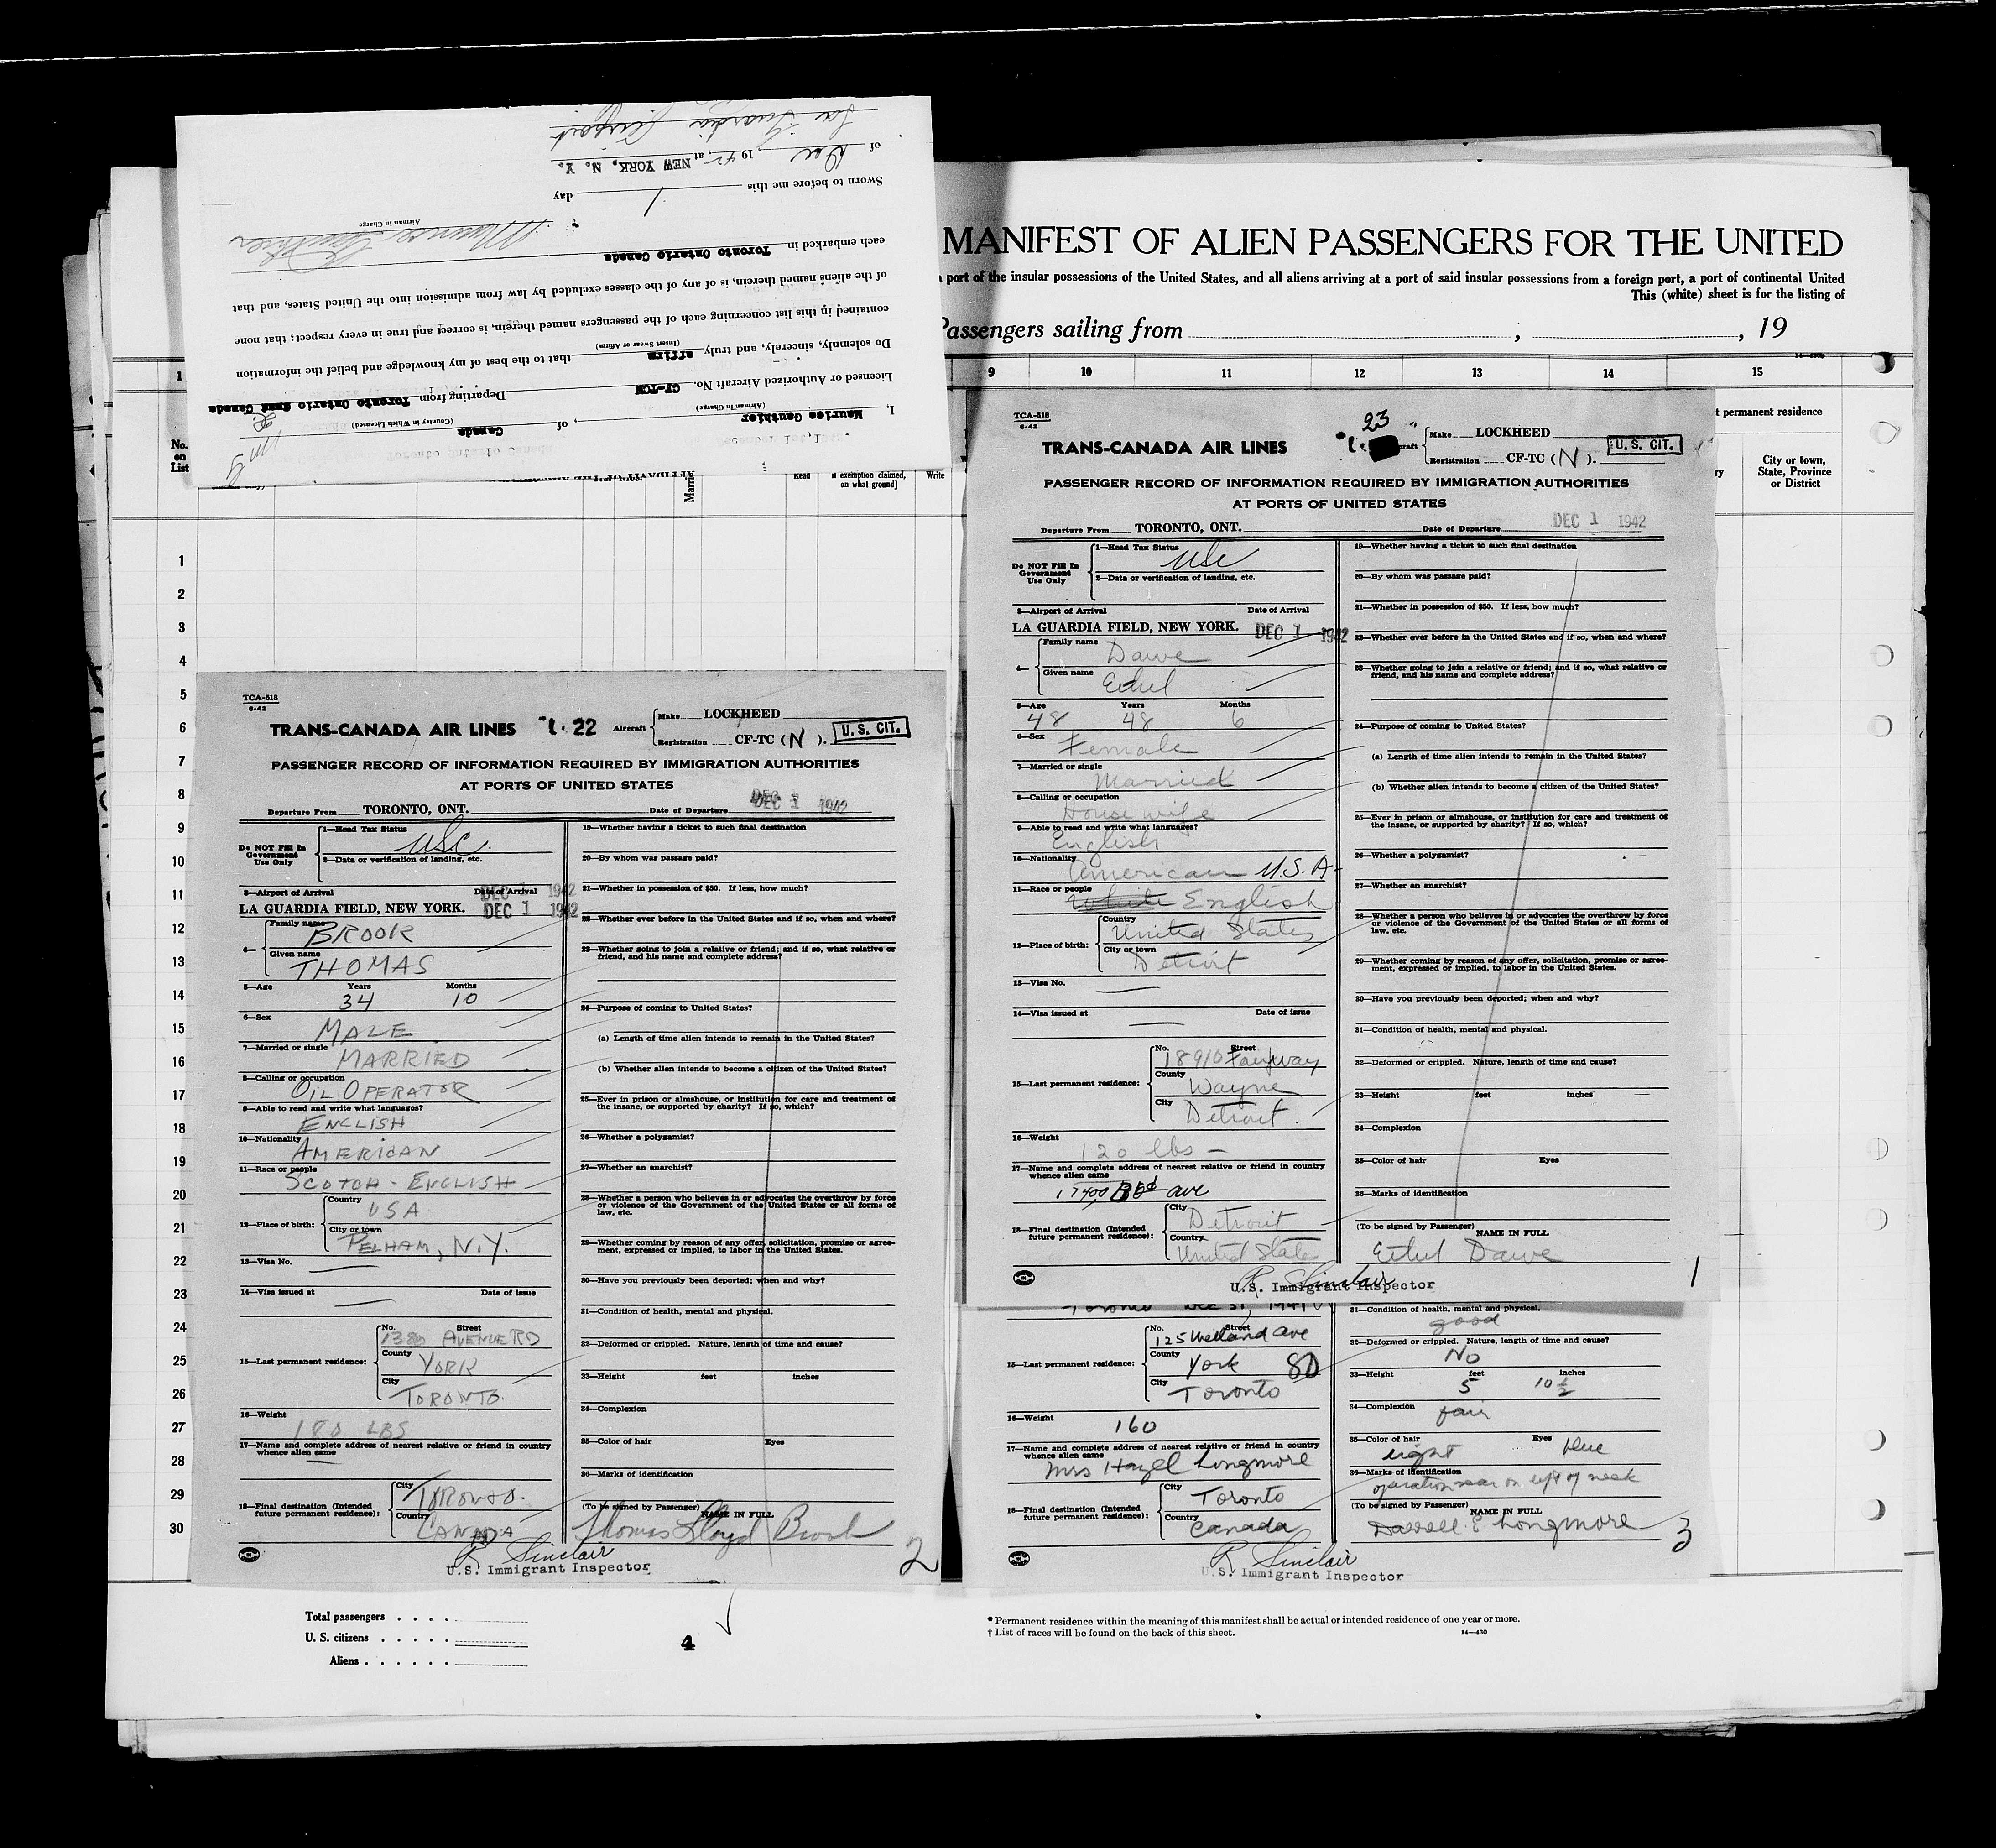 La Guardia Airport
of Dec, 1942, at NEW YORK, N. Y.
Sworn to before me this 1 day
Maurice Gauthier
Airman in Charge
each embarked in Toronto Ontario Canada
of the aliens named therein, is of any of the classes excluded by law from admission into the United States, and that
contained in this list concerning each of the passengers named therein, is correct and true in every respect; that none
Do solemnly, sincerely, and truly affirm that to the best of my knowledge and belief the information
(Insert Swear or Affirm)
Licensed or Authorized Aircraft No. CF-TCN Departing from Toronto Ontario Canada
(Airman in Charge) (Country in Which Licensed)
I, Maurice Gauthier, of Canada
MANIFEST OF ALIEN PASSENGERS FOR THE UNITED
port of the insular possessions of the United States, and all aliens arriving at a port of said insular possessions from a foreign port, a port of continental United
This (white) sheet is for the listing of
Passengers sailing from , , 19
14—430b
1 9 10 11 12 13 14 15
No.
on
List
Married
Read
if exemption claimed,
on what ground]
Write
permanent residence
City or town,
State, Province
or District
1
2
3
4
5
6
7
8
9
10
11
12
13
14
15
16
17
18
19
20
21
22
23
24
25
26
27
28
29
30
TCA-518
6-42
TRANS-CANADA AIR LINES 22 Aircraft Make LOCKHEED
Registration CF-TC (N). U. S. CIT.
PASSENGER RECORD OF INFORMATION REQUIRED BY IMMIGRATION AUTHORITIES
AT PORTS OF UNITED STATES
Departure From TORONTO, ONT. Date of Departure DEC 1 1942
Do NOT Fill In
Government
Use Only
1—Head Tax Status
USC
2—Data or verification of landing, etc.
3—Airport of Arrival Date of Arrival
DEC 1 1942
LA GUARDIA FIELD, NEW YORK. DEC 1 1942
4— Family name
BROOK
Given name
THOMAS
5—Age Years Months
34 10
6—Sex
MALE
7—Married or single
MARRIED
8—Calling or occupation
OIL OPERATOR
9—Able to read and write what languages?
ENGLISH
10—Nationality
AMERICAN
11—Race or people
SCOTCH - ENGLISH
12—Place of birth: Country
USA
City or town
PELHAM, N.Y.
13—Visa No.
14—Visa issued at Date of issue
15—Last permanent residence: No. Street
AVENUE RD
County
YORK
City
TORONTO.
16—Weight
180 LBS
17—Name and complete address of nearest relative or friend in country
whence alien came
18—Final destination (Intended
future permanent residence):
City
TORONTO.
Country
CANADA
19—Whether having a ticket to such final destination
20—By whom was passage paid?
21—Whether in possession of $50. If less, how much?
22—Whether ever before in the United States and if so, when and where?
23—Whether going to join a relative or friend; and if so, what relative or
friend, and his name and complete address?
24—Purpose of coming to United States?
(a) Length of time alien intends to remain in the United States?
(b) Whether alien intends to become a citizen of the United States?
25—Ever in prison or almshouse, or institution for care and treatment of
the insane, or supported by charity? If so, which?
26—Whether a polygamist?
27—Whether an anarchist?
28—Whether a person who believes in or advocates the overthrow by force
or violence of the Government of the United States or all forms of
law, etc.
29—Whether coming by reason of any offer, solicitation, promise or agree-
ment, expressed or implied, to labor in the United States.
30—Have you previously been deported; when and why?
31—Condition of health, mental and physical.
32—Deformed or crippled. Nature, length of time and cause?
33—Height feet inches
34—Complexion
35—Color of hair Eyes
36—Marks of identification
(To be signed by Passenger) NAME IN FULL
Thomas Lloyd Brook
R Sinclair
U.S. Immigrant Inspector
2
TCA-518
6-42
23
TRANS-CANADA AIR LINES Aircraft Make LOCKHEED
Registration CF-TC (N). U. S. CIT.
PASSENGER RECORD OF INFORMATION REQUIRED BY IMMIGRATION AUTHORITIES
AT PORTS OF UNITED STATES
Departure From TORONTO, ONT. Date of Departure DEC 1 1942
Do NOT Fill In
Government
Use Only
1—Head Tax Status
USC
2—Data or verification of landing, etc.
3—Airport of Arrival Date of Arrival
LA GUARDIA FIELD, NEW YORK. DEC 1 1942
4— Family name
Dawe
Given name
Ethel
5—Age Years Months
48 48 6
6—Sex
Female
7—Married or single
Married
8—Calling or occupation
Housewife
9—Able to read and write what languages?
English
10—Nationality
American U.S.A-
11—Race or people
White English
12—Place of birth: Country
United States
City or town
Detroit
13—Visa No.
14—Visa issued at Date of issue
15—Last permanent residence: No. Street
18910 Fairway
County
Wayne
City
Detroit.
16—Weight
120 lbs -
17—Name and complete address of nearest relative or friend in country
whence alien came
ave
18—Final destination (Intended
future permanent residence):
City
Detroit
Country
United States
19—Whether having a ticket to such final destination
20—By whom was passage paid?
21—Whether in possession of $50. If less, how much?
22—Whether ever before in the United States and if so, when and where?
23—Whether going to join a relative or friend; and if so, what relative or
friend, and his name and complete address?
24—Purpose of coming to United States?
(a) Length of time alien intends to remain in the United States?
(b) Whether alien intends to become a citizen of the United States?
25—Ever in prison or almshouse, or institution for care and treatment of
the insane, or supported by charity? If so, which?
26—Whether a polygamist?
27—Whether an anarchist?
28—Whether a person who believes in or advocates the overthrow by force
or violence of the Government of the United States or all forms of
law, etc.
29—Whether coming by reason of any offer, solicitation, promise or agree-
ment, expressed or implied, to labor in the United States.
30—Have you previously been deported; when and why?
31—Condition of health, mental and physical.
32—Deformed or crippled. Nature, length of time and cause?
33—Height feet inches
34—Complexion
35—Color of hair Eyes
36—Marks of identification
(To be signed by Passenger) NAME IN FULL
Ethel Dawe
R Sinclair
U.S. Immigrant Inspector
1
Toronto Dec 31, 1941
15—Last permanent residence: No. Street
125 Welland ave
County
York 80
City
Toronto
16—Weight
160
17—Name and complete address of nearest relative or friend in country
whence alien came
Mrs Hazel Longmore
18—Final destination (Intended
future permanent residence):
City
Toronto
Country
Canada
31—Condition of health, mental and physical.
good
32—Deformed or crippled. Nature, length of time and cause?
No
33—Height feet inches
5 10 ½
34—Complexion
fair
35—Color of hair Eyes
light blue
36—Marks of identification
operation scar on left of neck
(To be signed by Passenger) NAME IN FULL
Darrell E Longmore
R Sinclair
U.S. Immigrant Inspector
3
Total passengers . . . .
U. S. citizens . . . . .
Aliens . . . . . .
4
* Permanent residence within the meaning of this manifest shall be actual or intended residence of one year or more.
† List of races will be found on the back of this sheet.
14—430